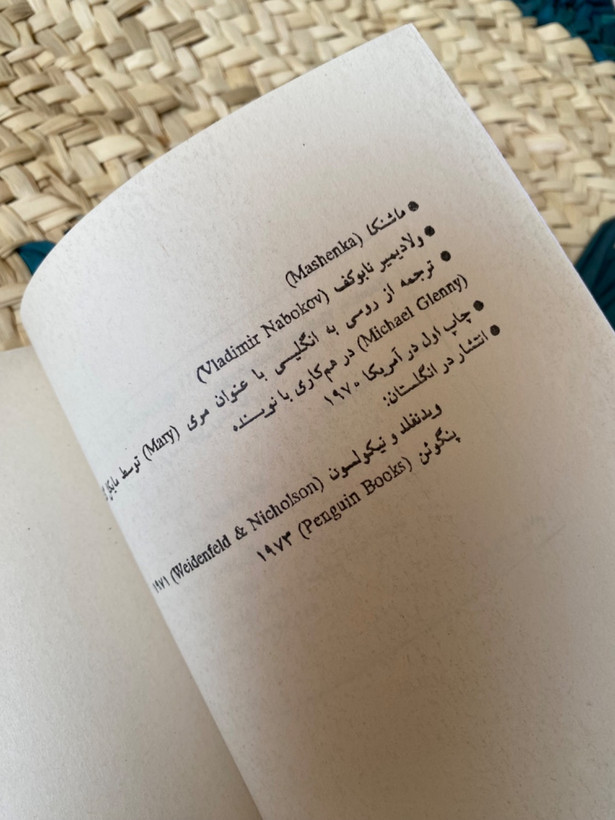 ● ماشنکا (Mashenka)
● ولادیمیر نابوکف (Vladimir Nabokov)
● ترجمه از روسی به انگلیسی با عنوان مری (Mary) توسط مایکل
(Michael Glenny) در هم‌کاری با نویسنده
● چاپ اول در آمریکا ۱۹۷۰
● انتشار در انگلستان:
ویدنفلد و نیکولسون (Weidenfeld & Nicholson) ۱۹۷۱
پنگوئن (Penguin Books) ۱۹۷۳